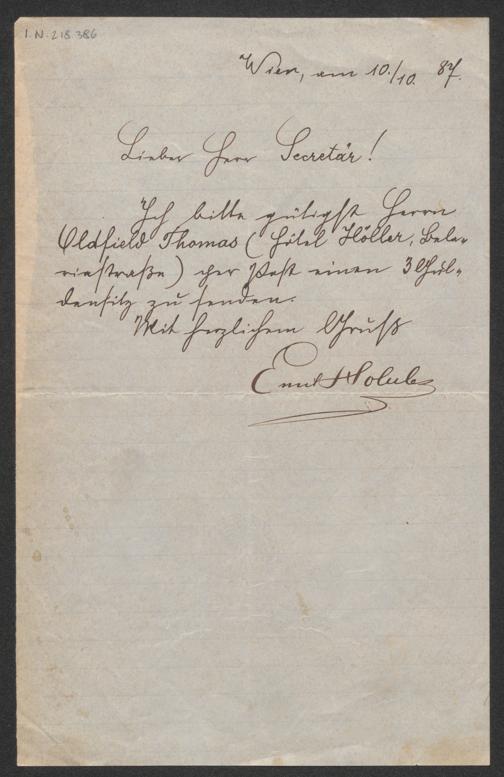 I.N. 218.386
Wien, am 10./10. 87.
Lieber Herr Secretär!
Ich bitte gütigst Herrn
Oldfield Thomas (Hôtel Höller, Bela-
riastraße) per Post einen 3 Gul-
densitz zu senden.
Mit herzlichem Gruß
Emil Holub